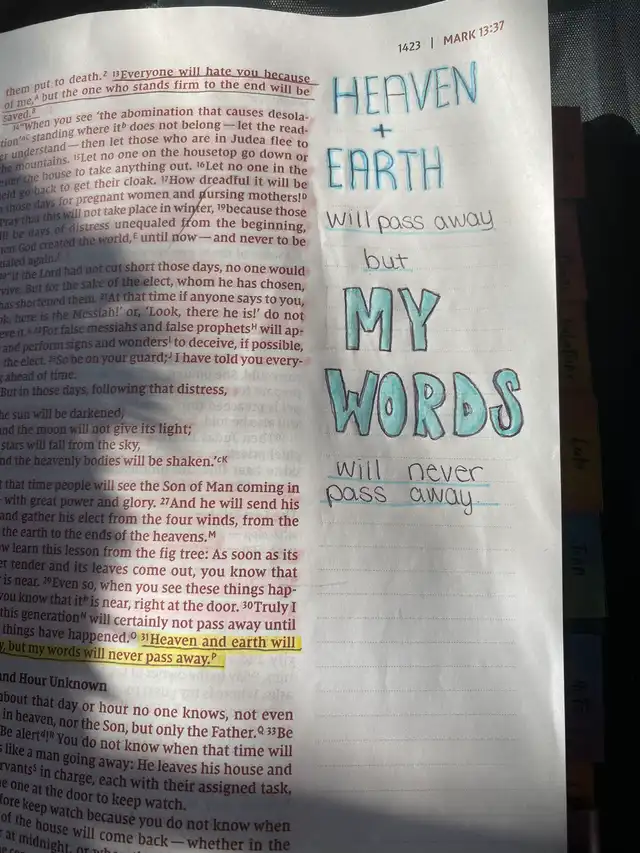 1423 | MARK 13:37
them put to death.ᶻ ¹³Everyone will hate you because
of me,ᴬ but the one who stands firm to the end will be
saved.ᴮ
¹⁴"When you see 'the abomination that causes desola-
tion'ᵃᶜ standing where itᵇ does not belong—let the read-
understand—then let those who are in Judea flee to
the mountains. ¹⁵Let no one on the housetop go down or
the house to take anything out. ¹⁶Let no one in the
go back to get their cloak. ¹⁷How dreadful it will be
those days for pregnant women and nursing mothers!ᴰ
that this will not take place in winter, ¹⁹because those
be days of distress unequaled from the beginning,
God created the world,ᴱ until now—and never to be
again.
"If the Lord had not cut short those days, no one would
But for the sake of the elect, whom he has chosen,
has shortened them. ²¹At that time if anyone says to you,
here is the Messiah!' or, 'Look, there he is!' do not
²²For false messiahs and false prophetsᴴ will ap-
and perform signs and wondersᴵ to deceive, if possible,
the elect. ²³So be on your guard;ᴶ I have told you every-
ahead of time.
But in those days, following that distress,
sun will be darkened,
and the moon will not give its light;
stars will fall from the sky,
and the heavenly bodies will be shaken.'ᶜᴷ
that time people will see the Son of Man coming in
with great power and glory. ²⁷And he will send his
and gather his elect from the four winds, from the
the earth to the ends of the heavens.ᴹ
learn this lesson from the fig tree: As soon as its
get tender and its leaves come out, you know that
is near. ²⁹Even so, when you see these things hap-
you know that itᵇ is near, right at the door. ³⁰Truly I
this generationᴺ will certainly not pass away until
things have happened.ᴼ ³¹Heaven and earth will
but my words will never pass away.ᴾ
and Hour Unknown
about that day or hour no one knows, not even
in heaven, nor the Son, but only the Father.ꟴ ³³Be
Be alert! You do not know when that time will
like a man going away: He leaves his house and
in charge, each with their assigned task,
one at the door to keep watch.
keep watch because you do not know when
of the house will come back—whether in the
at midnight, or
HEAVEN
+
EARTH
will pass away
but
MY
WORDS
will never
pass away.